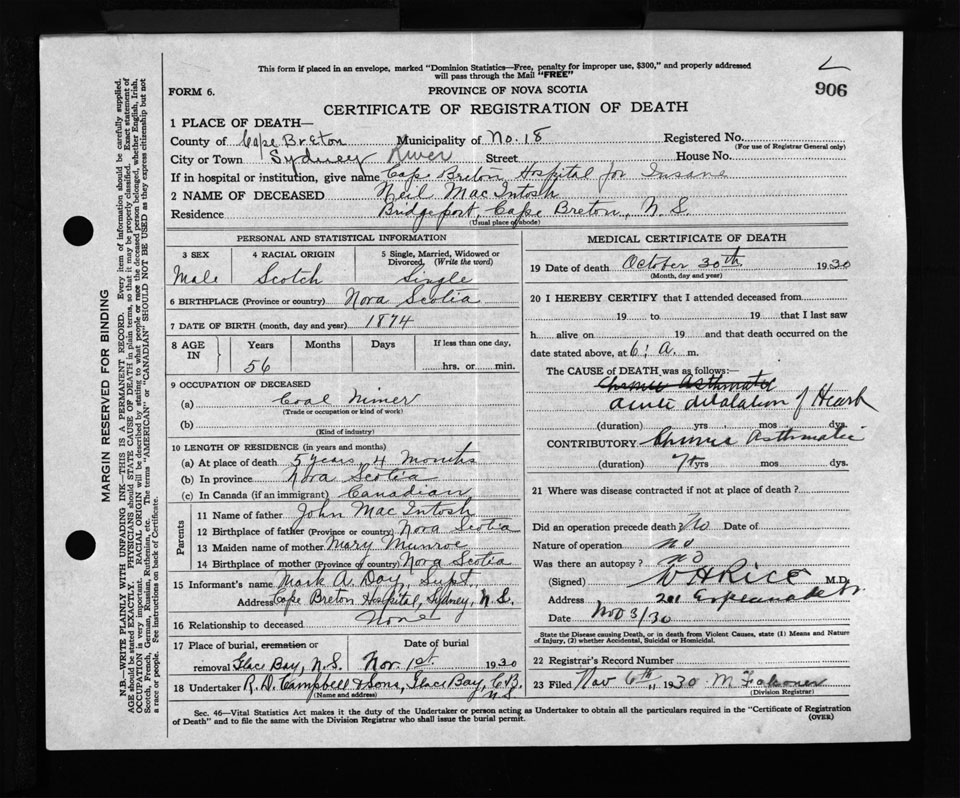 This form if placed in an envelope, marked "Dominion Statistics—Free, penalty for improper use, $300," and properly addressed
will pass through the Mail "FREE"
906
FORM 6.
PROVINCE OF NOVA SCOTIA
CERTIFICATE OF REGISTRATION OF DEATH
1 PLACE OF DEATH—
County of Cape Breton Municipality of No. 18 Registered No.
(For use of Registrar General only)
City or Town Sydney River Street House No.
If in hospital or institution, give name Cape Breton Hospital for Insane
2 NAME OF DECEASED Neil MacIntosh
Residence Bridgeport, Cape Breton, N.S.
(Usual place of abode)
PERSONAL AND STATISTICAL INFORMATION
3 SEX 4 RACIAL ORIGIN 5 Single, Married, Widowed or
Divorced. (Write the word)
Male Scotch Single
6 BIRTHPLACE (Province or country) Nova Scotia
7 DATE OF BIRTH (month, day and year) 1874
8 AGE IN Years Months Days If less than one day,
56 hrs. or min.
9 OCCUPATION OF DECEASED
(a) Coal Miner
(Trade or occupation or kind of work)
(b)
(Kind of industry)
10 LENGTH OF RESIDENCE (in years and months)
(a) At place of death 5 years, 4 months
(b) In province Nova Scotia
(c) In Canada (if an immigrant) Canadian
Parents
11 Name of father John MacIntosh
12 Birthplace of father (Province or country) Nova Scotia
13 Maiden name of mother Mary Munroe
14 Birthplace of mother (Province of country) Nova Scotia
15 Informant's name Mark A. Day, Supt.
Address Cape Breton Hospital, Sydney, N.S.
16 Relationship to deceased None
17 Place of burial, cremation or Date of burial
removal Glace Bay, N.S. Nov. 1st 1930
18 Undertaker R.D. Campbell & Sons, Glace Bay, C.B.
(Name and address) N.S.
MEDICAL CERTIFICATE OF DEATH
19 Date of death October 30th 1930
(Month, day and year)
20 I HEREBY CERTIFY that I attended deceased from
19 to 19 that I last saw
h alive on 19 and that death occurred on
date stated above, at 6; A. m.
The CAUSE of DEATH was as follows:—
Chronic Asthmatic
acute dilalation of Heart
(duration) yrs mos dys.
CONTRIBUTORY Chronic Asthmatic
(duration) yrs mos dys.
21 Where was disease contracted if not at place of death?
Did an operation precede death? No Date of
Nature of operation no
Was there an autopsy? no
(Signed) W H Rice M.D.
Address 201 Esplanade
Date Nov 3/30
State the Disease causing Death, or in death from Violent Causes, state (1) Means and Nature
of Injury, (2) whether Accidental, Suicidal or Homicidal.
22 Registrar's Record Number
23 Filed Nov 6th 1930 M Falconer
(Division Registrar)
Sec. 46—Vital Statistics Act makes it the duty of the Undertaker or person acting as Undertaker to obtain all the particulars required in the "Certificate of Registration
of Death" and to file the same with the Division Registrar who shall issue the burial permit.
(OVER)
MARGIN RESERVED FOR BINDING
N.B.—WRITE PLAINLY WITH UNFADING INK—THIS IS A PERMANENT RECORD. Every item of information should be carefully supplied.
AGE should be stated EXACTLY. PHYSICIANS should STATE CAUSE OF DEATH in plain terms, so that it may be properly classified. Exact statement of
OCCUPATION is very important. RACIAL ORIGIN will be described by stating to what people or race the deceased person belonged, whether English, Irish,
Scotch, French, German, Russian, Ruthenian, etc. The terms "AMERICAN" or "CANADIAN" SHOULD NOT BE USED as they express citizenship but not
a race or people. See instructions on back of Certificate.